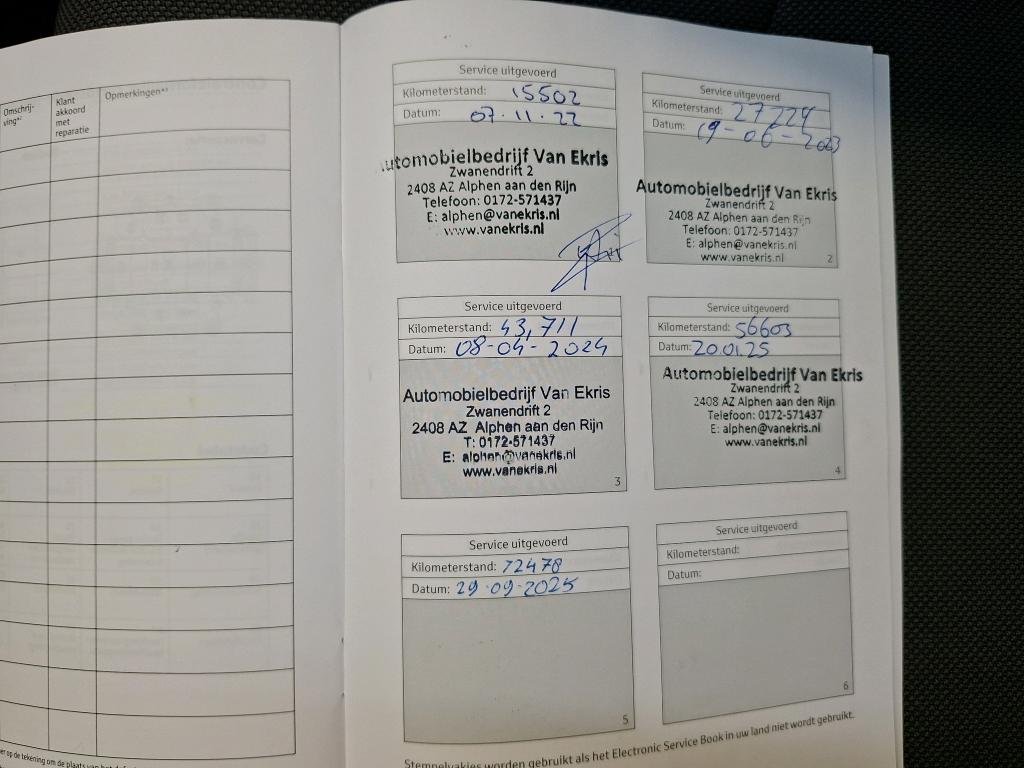 Omschrij-
ving*²
Klant
akkoord
met
reparatie
Opmerkingen*³
Service uitgevoerd
Kilometerstand: 15502
Datum: 07.11.22
utomobielbedrijf Van Ekris
Zwanendrift 2
2408 AZ Alphen aan den Rijn
Telefoon: 0172-571437
E: alphen@vanekris.nl
www.vanekris.nl
Service uitgevoerd
Kilometerstand: 27224
Datum: 19-06-2023
Automobielbedrijf Van Ekris
Zwanendrift 2
2408 AZ Alphen aan den Rijn
Telefoon: 0172-571437
E: alphen@vanekris.nl
www.vanekris.nl
2
Service uitgevoerd
Kilometerstand: 43,711
Datum: 08-04-2024
Automobielbedrijf Van Ekris
Zwanendrift 2
2408 AZ Alphen aan den Rijn
T: 0172-571437
E: alphen@vanekris.nl
www.vanekris.nl
3
Service uitgevoerd
Kilometerstand: 56603
Datum: 20.01.25
Automobielbedrijf Van Ekris
Zwanendrift 2
2408 AZ Alphen aan den Rijn
Telefoon: 0172-571437
E: alphen@vanekris.nl
www.vanekris.nl
4
Service uitgevoerd
Kilometerstand: 72478
Datum: 29-09-2025
5
Service uitgevoerd
Kilometerstand:
Datum:
6
er op de tekening om de plaats van het
Stempelvakjes worden gebruikt als het Electronic Service Book in uw land niet wordt gebruikt.